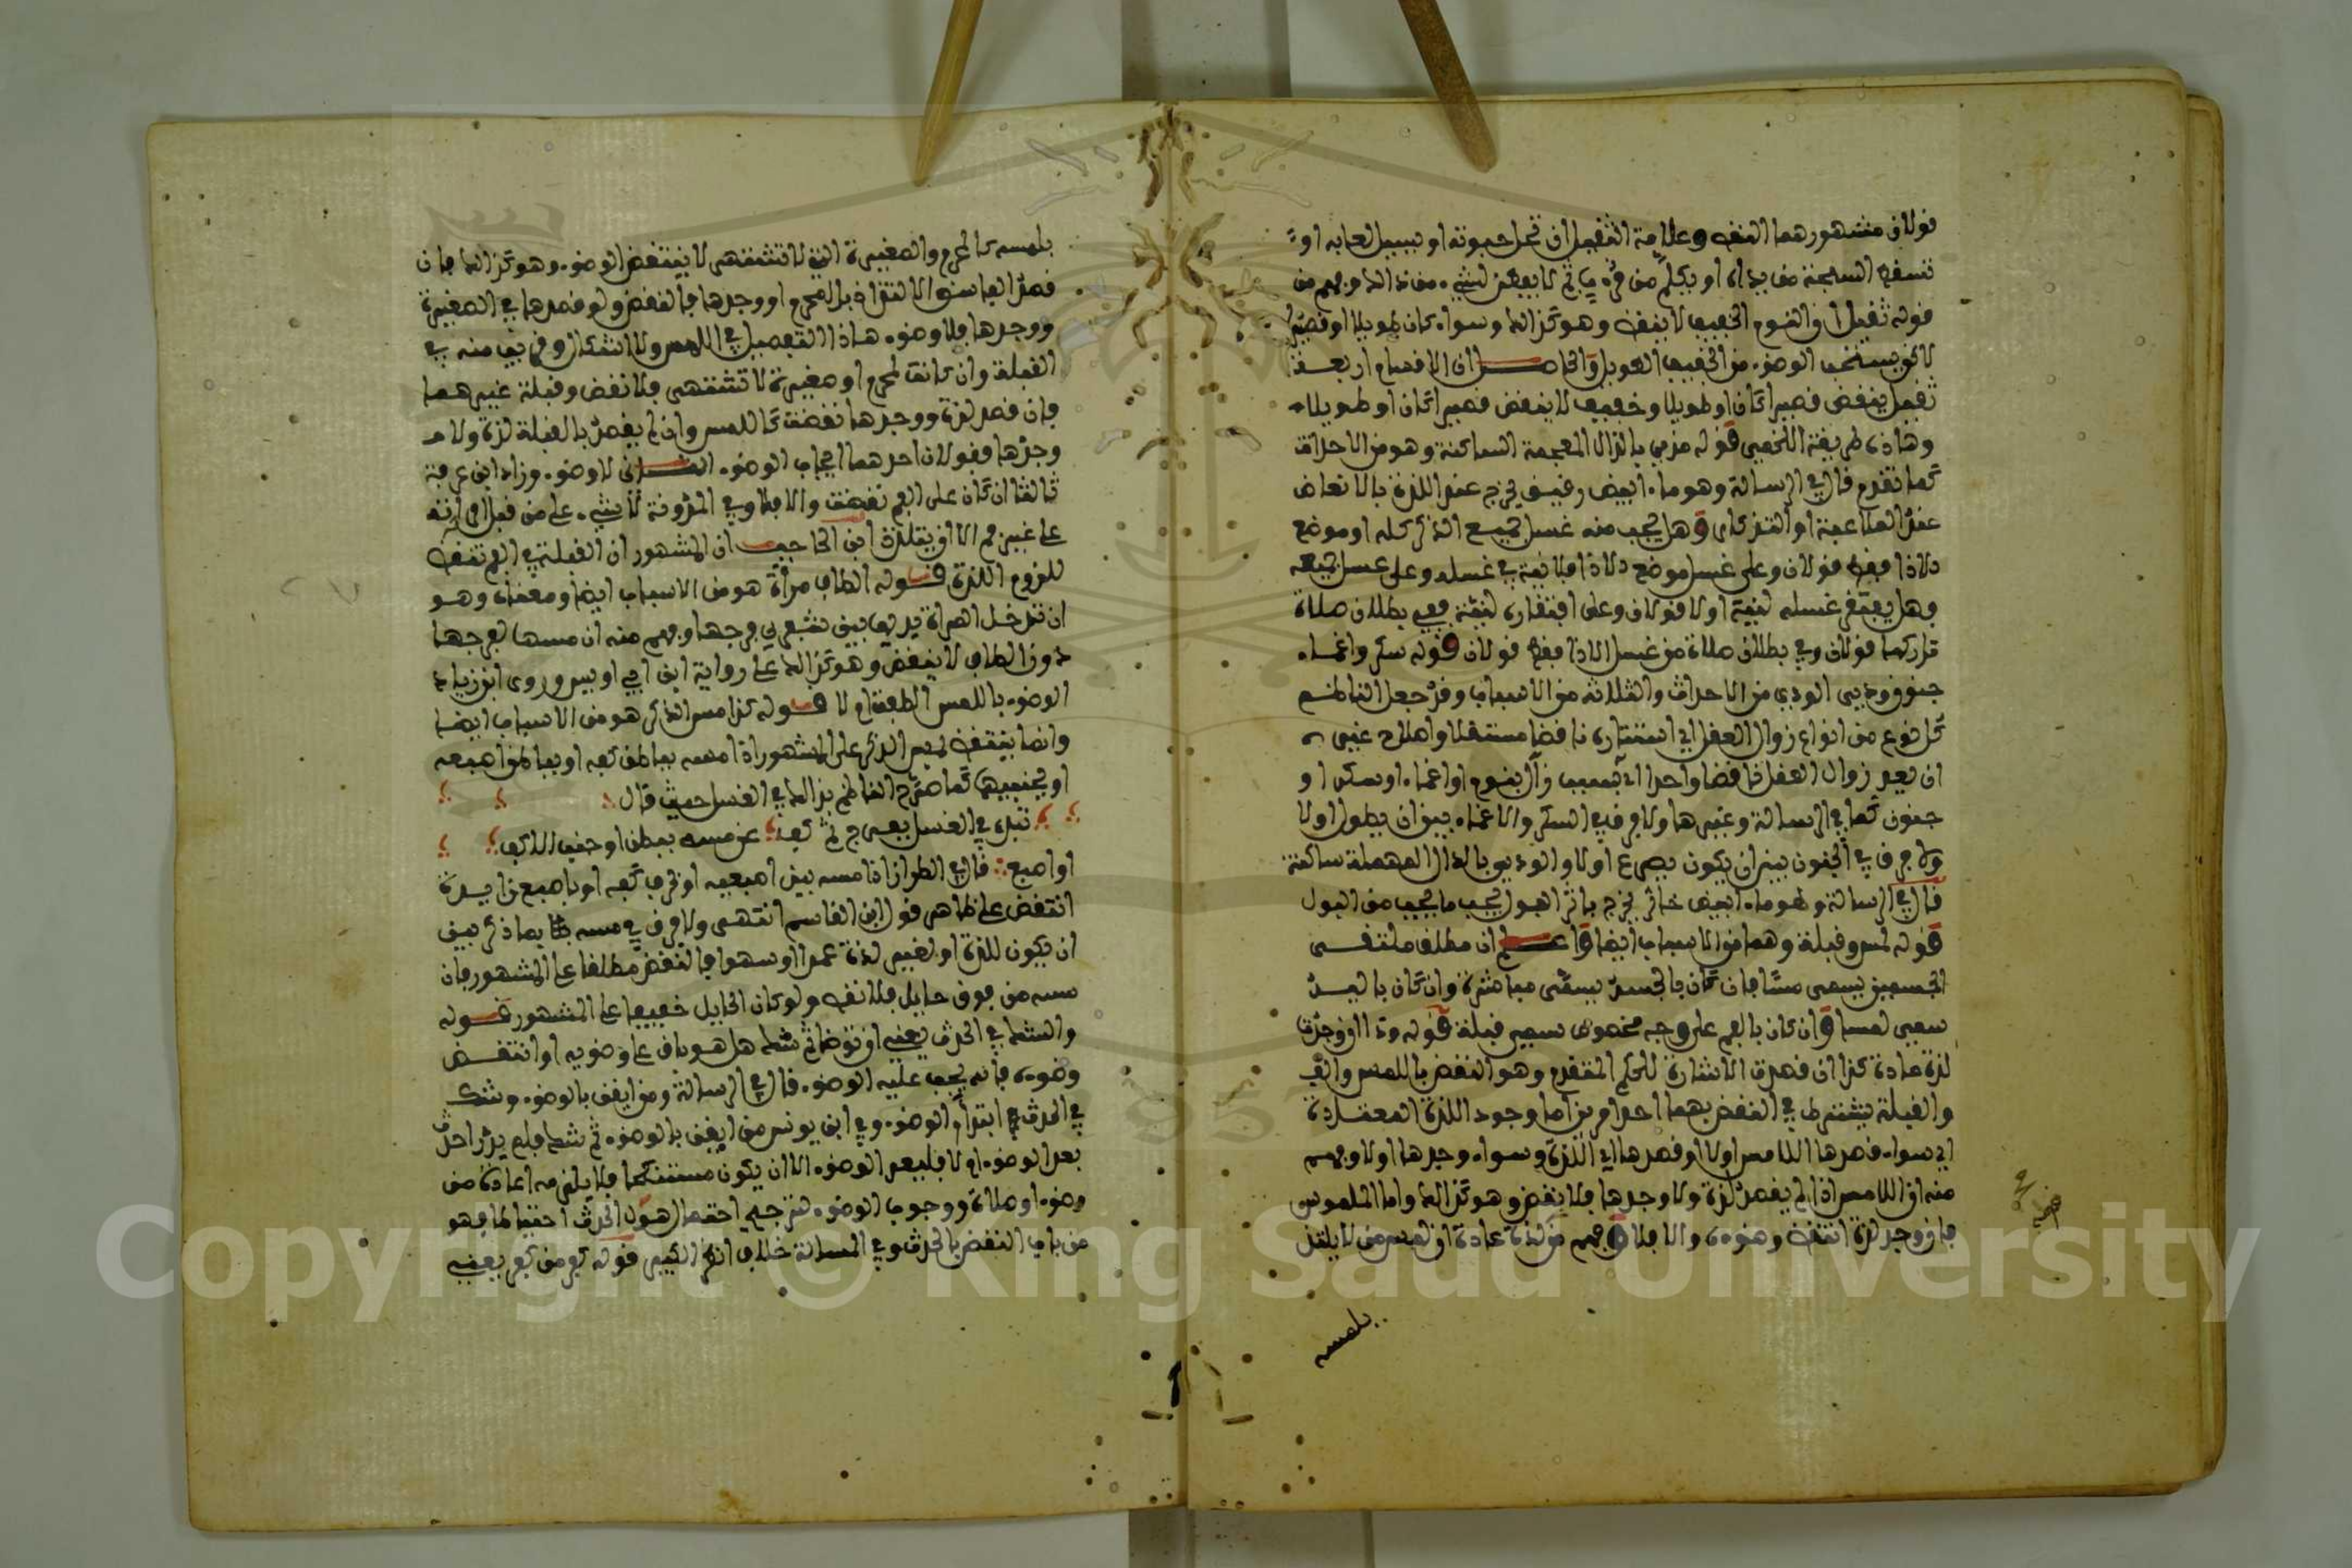 قولان مشهورهما النقض وعلامة الثقيل ان تحل حبوته او يسيل لعابه او
تسقط السبحة من يده او يكلم من قرب ثم لا يتفطن لشيء من ذلك وفهم من
قوله ثقيل ان النوم الخفيف لا ينقض وهو كذلك وسواء كان طويلا او قصيرا
لاكن يستحب الوضوء من الخفيف الطويل والحاصل ان الاقسام اربعة
ثقيل ينقض قصيرا كان او طويلا وخفيف لا ينقض قصيرا كان او طويلا
وهاذه طريقة اللخمي قوله مذي بالذال المعجمة الساكنة وهو من الاحداث
كما تقدم قال في الرسالة وهو ماء ابيض رقيق يخرج عند اللذة بالانعاظ
عند الملاعبة او التذكار وهل يجب منه غسل جميع الذكر كله او موضع
الاذا فقط قولان وعلى غسل موضع الاذا فلا نية في غسله وعلى غسل جميعه
وهل يفتقر غسله لنية او لا قولان وعلى افتقاره لنية ففي بطلان صلاة
تاركها قولان وفي بطلان صلاة من غسل الاذا فقط قولان قوله سكر واغماء
جنون ودي الودي من الاحداث والثلاثة من الاسباب وقد جعل الناظم
كل نوع من انواع زوال العقل اي استتاره ناقضا مستقلا واصلاح غيره
ان يعد زوال العقل ناقضا واحدا اي بسبب زال بنوم او اغماء او سكر او
جنون كما في الرسالة وغيرها ولا فرق في السكر والاغماء بين ان يطول او لا
ولا فرق في الجنون بين ان يكون بصرع او لا والودي بالدال المهملة ساكنة
قال في الرسالة وهو ماء ابيض خاثر يخرج باثر البول يجب ما يجب من البول
قوله لمس وقبلة وهما من الاسباب ايضا واعلم ان مطلق ملتقى
الجسمين يسمى مسا فان كان بالجسد يسمى مباشرة وان كان باليد
سمي لمسا وان كان بالفم على وجه مخصوص سمي قبلة قوله وذا ان وجدت
لذة عادة كذا ان قصدت الاشارة للحكم المتقدم وهو النقض باللمس والقبلة
والقبلة يشترط في النقض بهما احد امرين اما وجود اللذة المعتادة
اي سواء قصدها اللامس او لا او قصدها اي اللذة وسواء وجدها او لا وفهم
منه ان اللامس اذا لم يقصد لذة ولا وجدها فلا ينقض وهو كذلك واما الملموس
فان وجد لذة انتقض وضوءه والا فلا وفهم من لذة عادة ان لمس من لا يلتذ
بلمسه
بلمسه كالمحرم والصغيرة التي لا تشتهى لا ينتقض الوضوء وهو كذلك فان
قصد الفاسق الالتذاذ بالمحرم او وجدها فالنقض ولو قصدها في الصغيرة
ووجدها فلا وضوء هاذا التفصيل في اللمس ولا اشكال وفي بقي منه في
القبلة وان كانت لمحرم او صغيرة لا تشتهى فلا نقض وقبلة غيرهما
فان قصد لذة ووجدها نقضت كاللمس وان لم يقصد بالقبلة لذة ولا
وجدها فقولان احدهما ايجاب الوضوء الثاني لا وضوء وزاد ابن عرفة
ثالثا ان كان على الفم نقضت والا فلا وفي المدونة لا شيء على من قبل امراته
على غير فم الا ان يلتذ ابن الحاجب ان المشهور ان القبلة في الفم تنقض
للزوم اللذة قوله الطاف مرأة هو من الاسباب ايضا ومعناه وهو
ان تدخل المراة يدها بين شفري فرجها وفهم منه ان مسها لفرجها
دون الطاف لا ينقض وهو كذلك على رواية ابن ابي اويس وروى ابن زياد
الوضوء باللمس الطفت ام لا قوله كذا مس الذكر هو من الاسباب ايضا
وانما ينتقض لمس الذكر على المشهور اذا مسه بباطن كفه او بباطن اصبعه
او بجنبيهما كما صرح الناظم بذلك في الغسل حيث قال
تبدا في الغسل بفرج ثم كف عن مسه ببطن او جنب الاكف
او اصبع قال في الطراز اذا مسه بين اصبعيه او بحرف كفه او باصبع زايدة
انتقض على ظاهر قول ابن القاسم انتهى ولا فرق في مسه بما ذكر بين
ان يكون للذة او لغير لذة عمدا او سهوا فالنقض مطلقا على المشهور فان
مسه من فوق حايل فلا نقض ولو كان الحايل خفيفا على المشهور قوله
والشك في الحدث يعني ان توضا ثم شك هل هو باق على وضويه او انتقض
وضوءه فانه يجب عليه الوضوء قال في الرسالة ومن ايقن بالوضوء وشك
في الحدث ابتدأ الوضوء وفي ابن يونس من ايقن بالوضوء ثم شك فلم يدر احدث
بعد الوضوء ام لا فليعد الوضوء الا ان يكون مستنكحا فلا يلزمه اعادة من
وضوء او صلاة ووجوب الوضوء لترجيح احتمال هول الحدث احتياطا فهو
من باب النقض بالحدث وفي المسالة خلاف انظر الكبير قوله كفر من كفر يعني